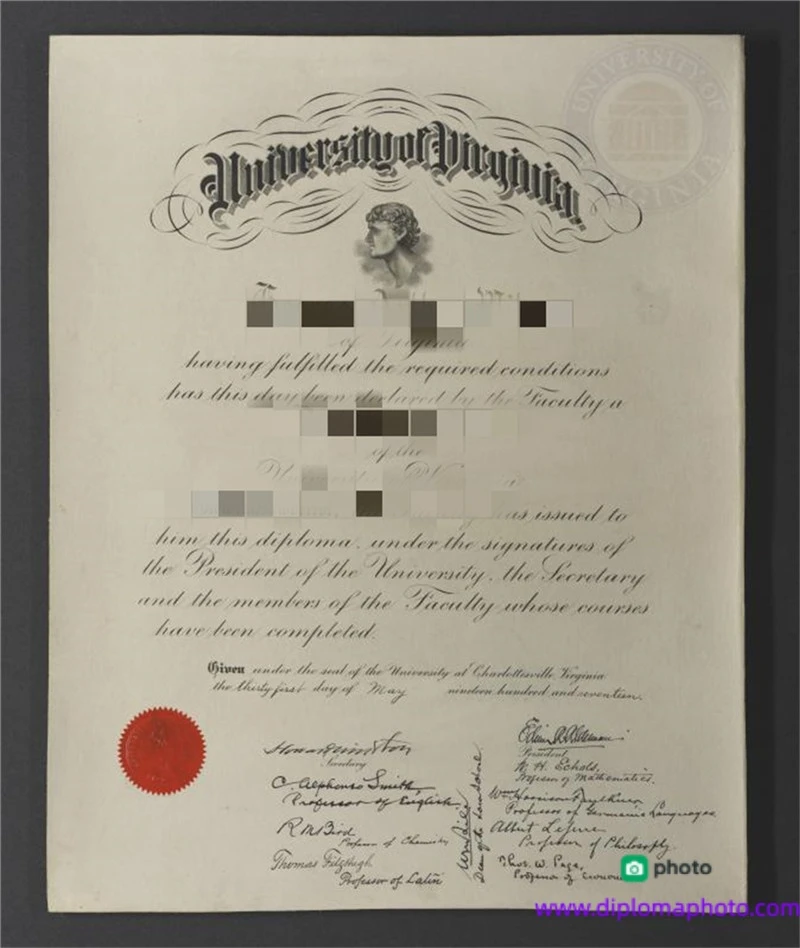 UNIVERSITY OF VIRGINIA
University of Virginia.
of Virginia
having fulfilled the required conditions
has this day been declared by the Faculty a
of the
as issued to
him this diploma, under the signatures of
the President of the University, the Secretary
and the members of the Faculty whose courses
have been completed.
Given under the seal of the University at Charlottesville, Virginia
the thirty first day of May nineteen hundred and seventeen.
Secretary
C. Alphonso Smith
Professor of English.
R M Bird
Professor of Chemistry
Thomas Fitzhugh
Professor of Latin
Edwin A. Alderman
President
W. H. Echols,
Professor of Mathematics.
Wm Harrison Faulkner
Professor of Germanic Languages
Albert Lefevre
Professor of Philosophy
Thos. W. Page,
Professor of
photo
www.diplomaphoto.com